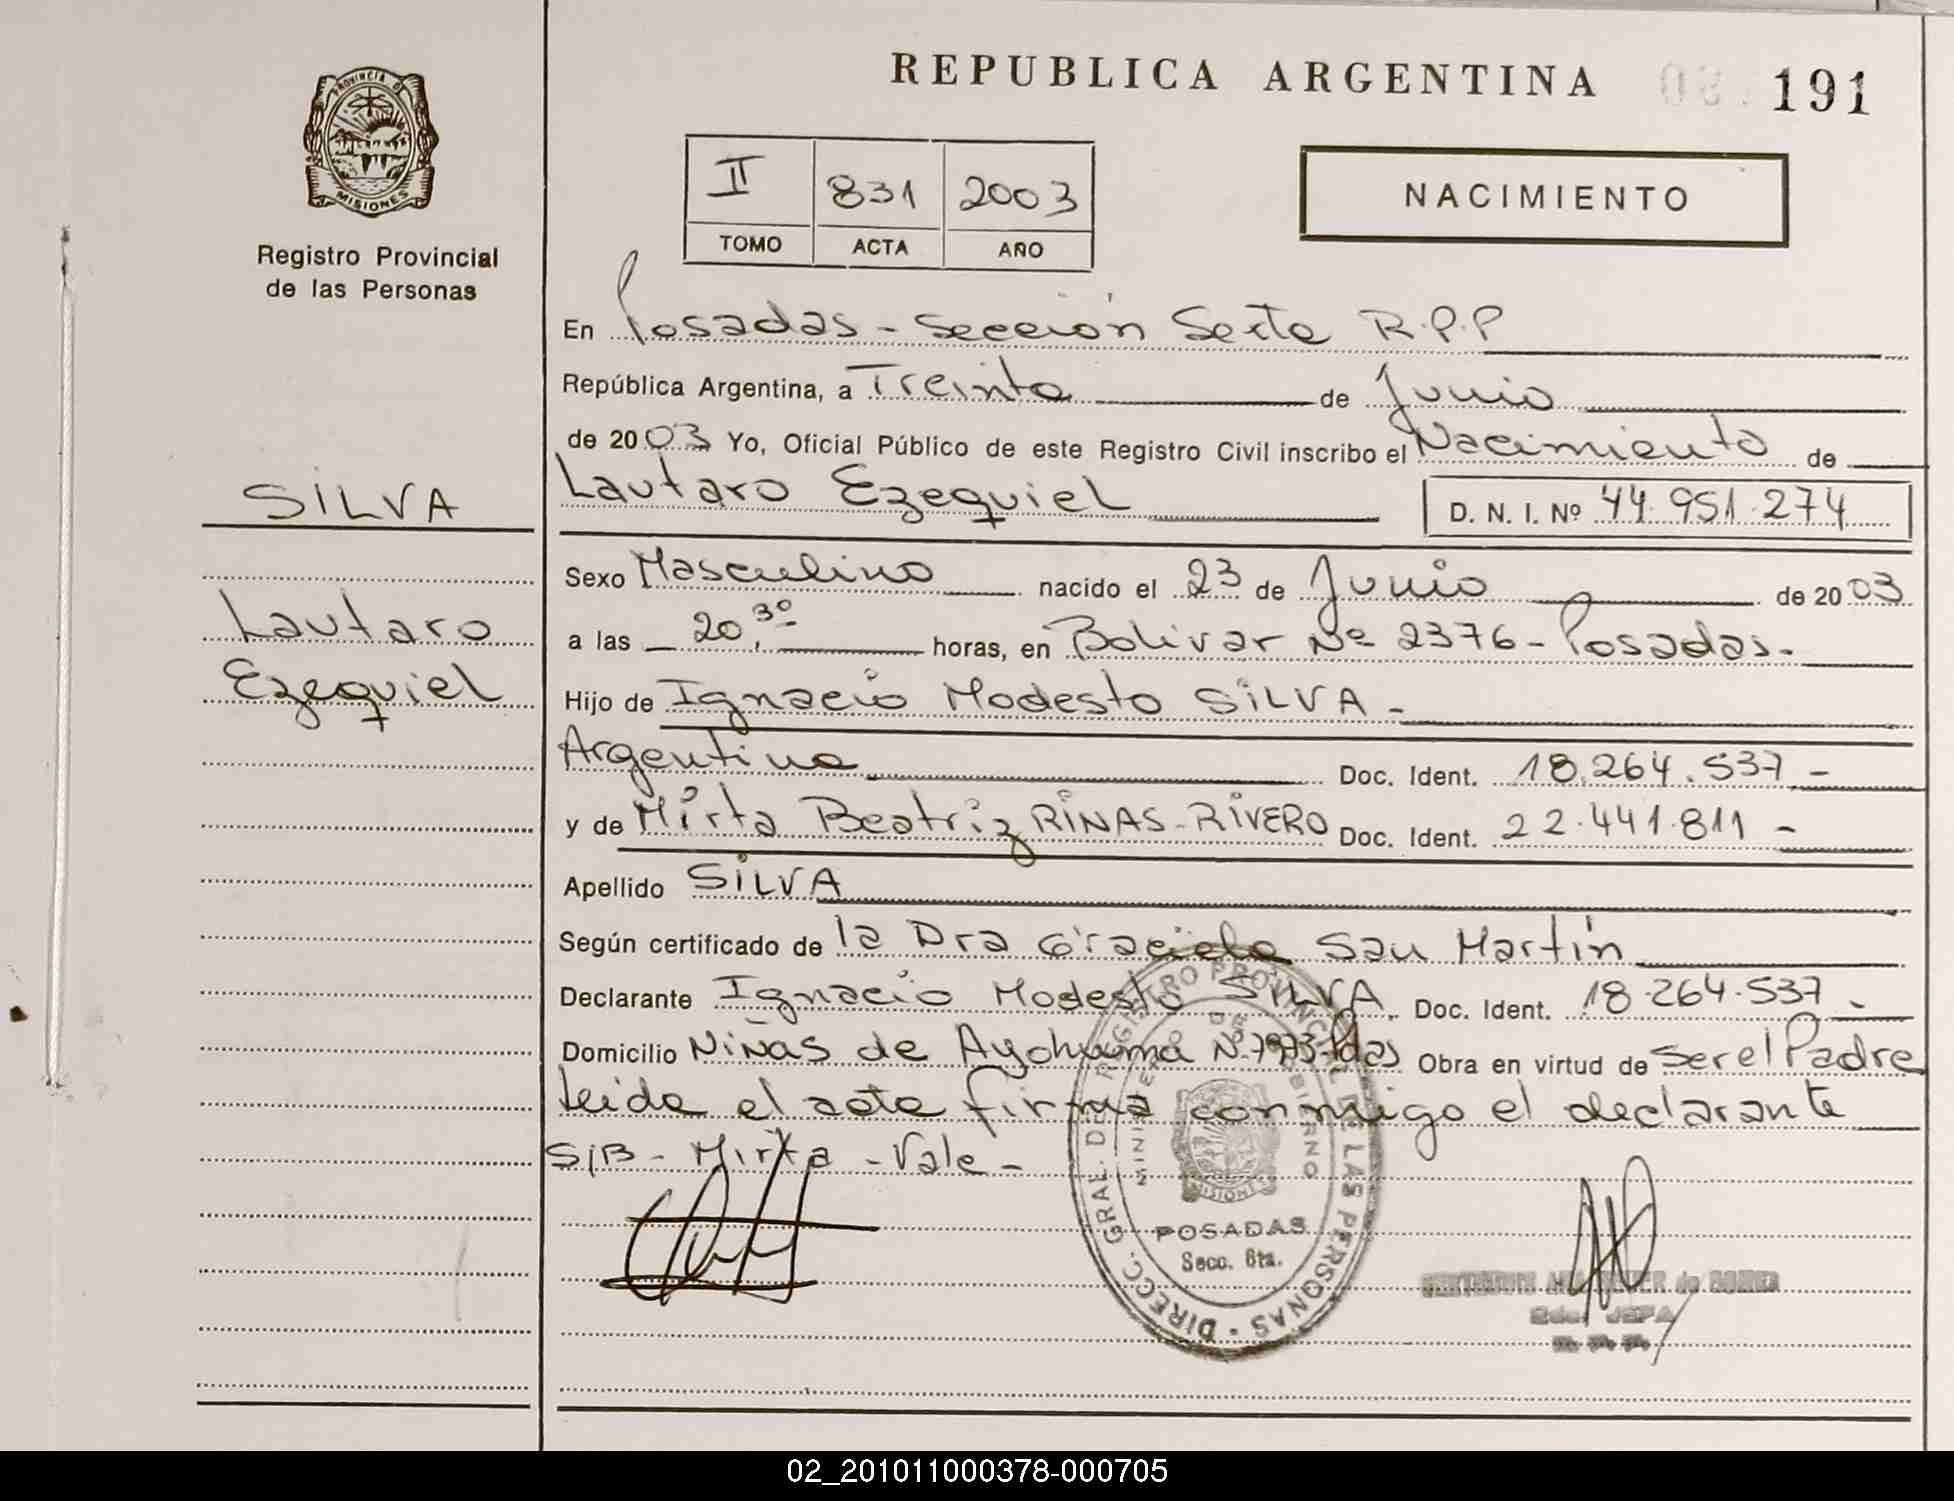 REPUBLICA ARGENTINA 191
PROVINCIA D MISIONES
Registro Provincial
de las Personas
II 831 2003
TOMO ACTA AÑO
NACIMIENTO
En Posadas - Sección Sexta R.P.P
República Argentina, a Treinta de Junio
de 2003 Yo, Oficial Público de este Registro Civil inscribo el Nacimiento de
SILVA
Lautaro Ezequiel D. N. I. Nº 44.951.274
Sexo Masculino nacido el 23 de Junio de 2003
Lautaro
a las 20,30 horas, en Bolivar Nº 2376 - Posadas.
Ezequiel
Hijo de Ignacio Modesto SILVA -
Argentina Doc. Ident. 18.264.537 -
y de Mirta Beatriz RINAS - RIVERO Doc. Ident. 22.441.811 -
Apellido SILVA
Según certificado de la Dra Graciela San Martín
Declarante Ignacio Modesto SILVA Doc. Ident. 18.264.537 -
Domicilio Niñas de Ayohuma Nº Pdas Obra en virtud de ser el Padre
Leida el acta firma conmigo el declarante
S/B - Mirta - Vale -
DIRECC. GRAL. DE REGISTRO PROVINCIAL DE LAS PERSONAS
MINISTERIO DE GOBIERNO
MISIONES
POSADAS
Secc. 6ta.
de
JEFA
02_201011000378-000705